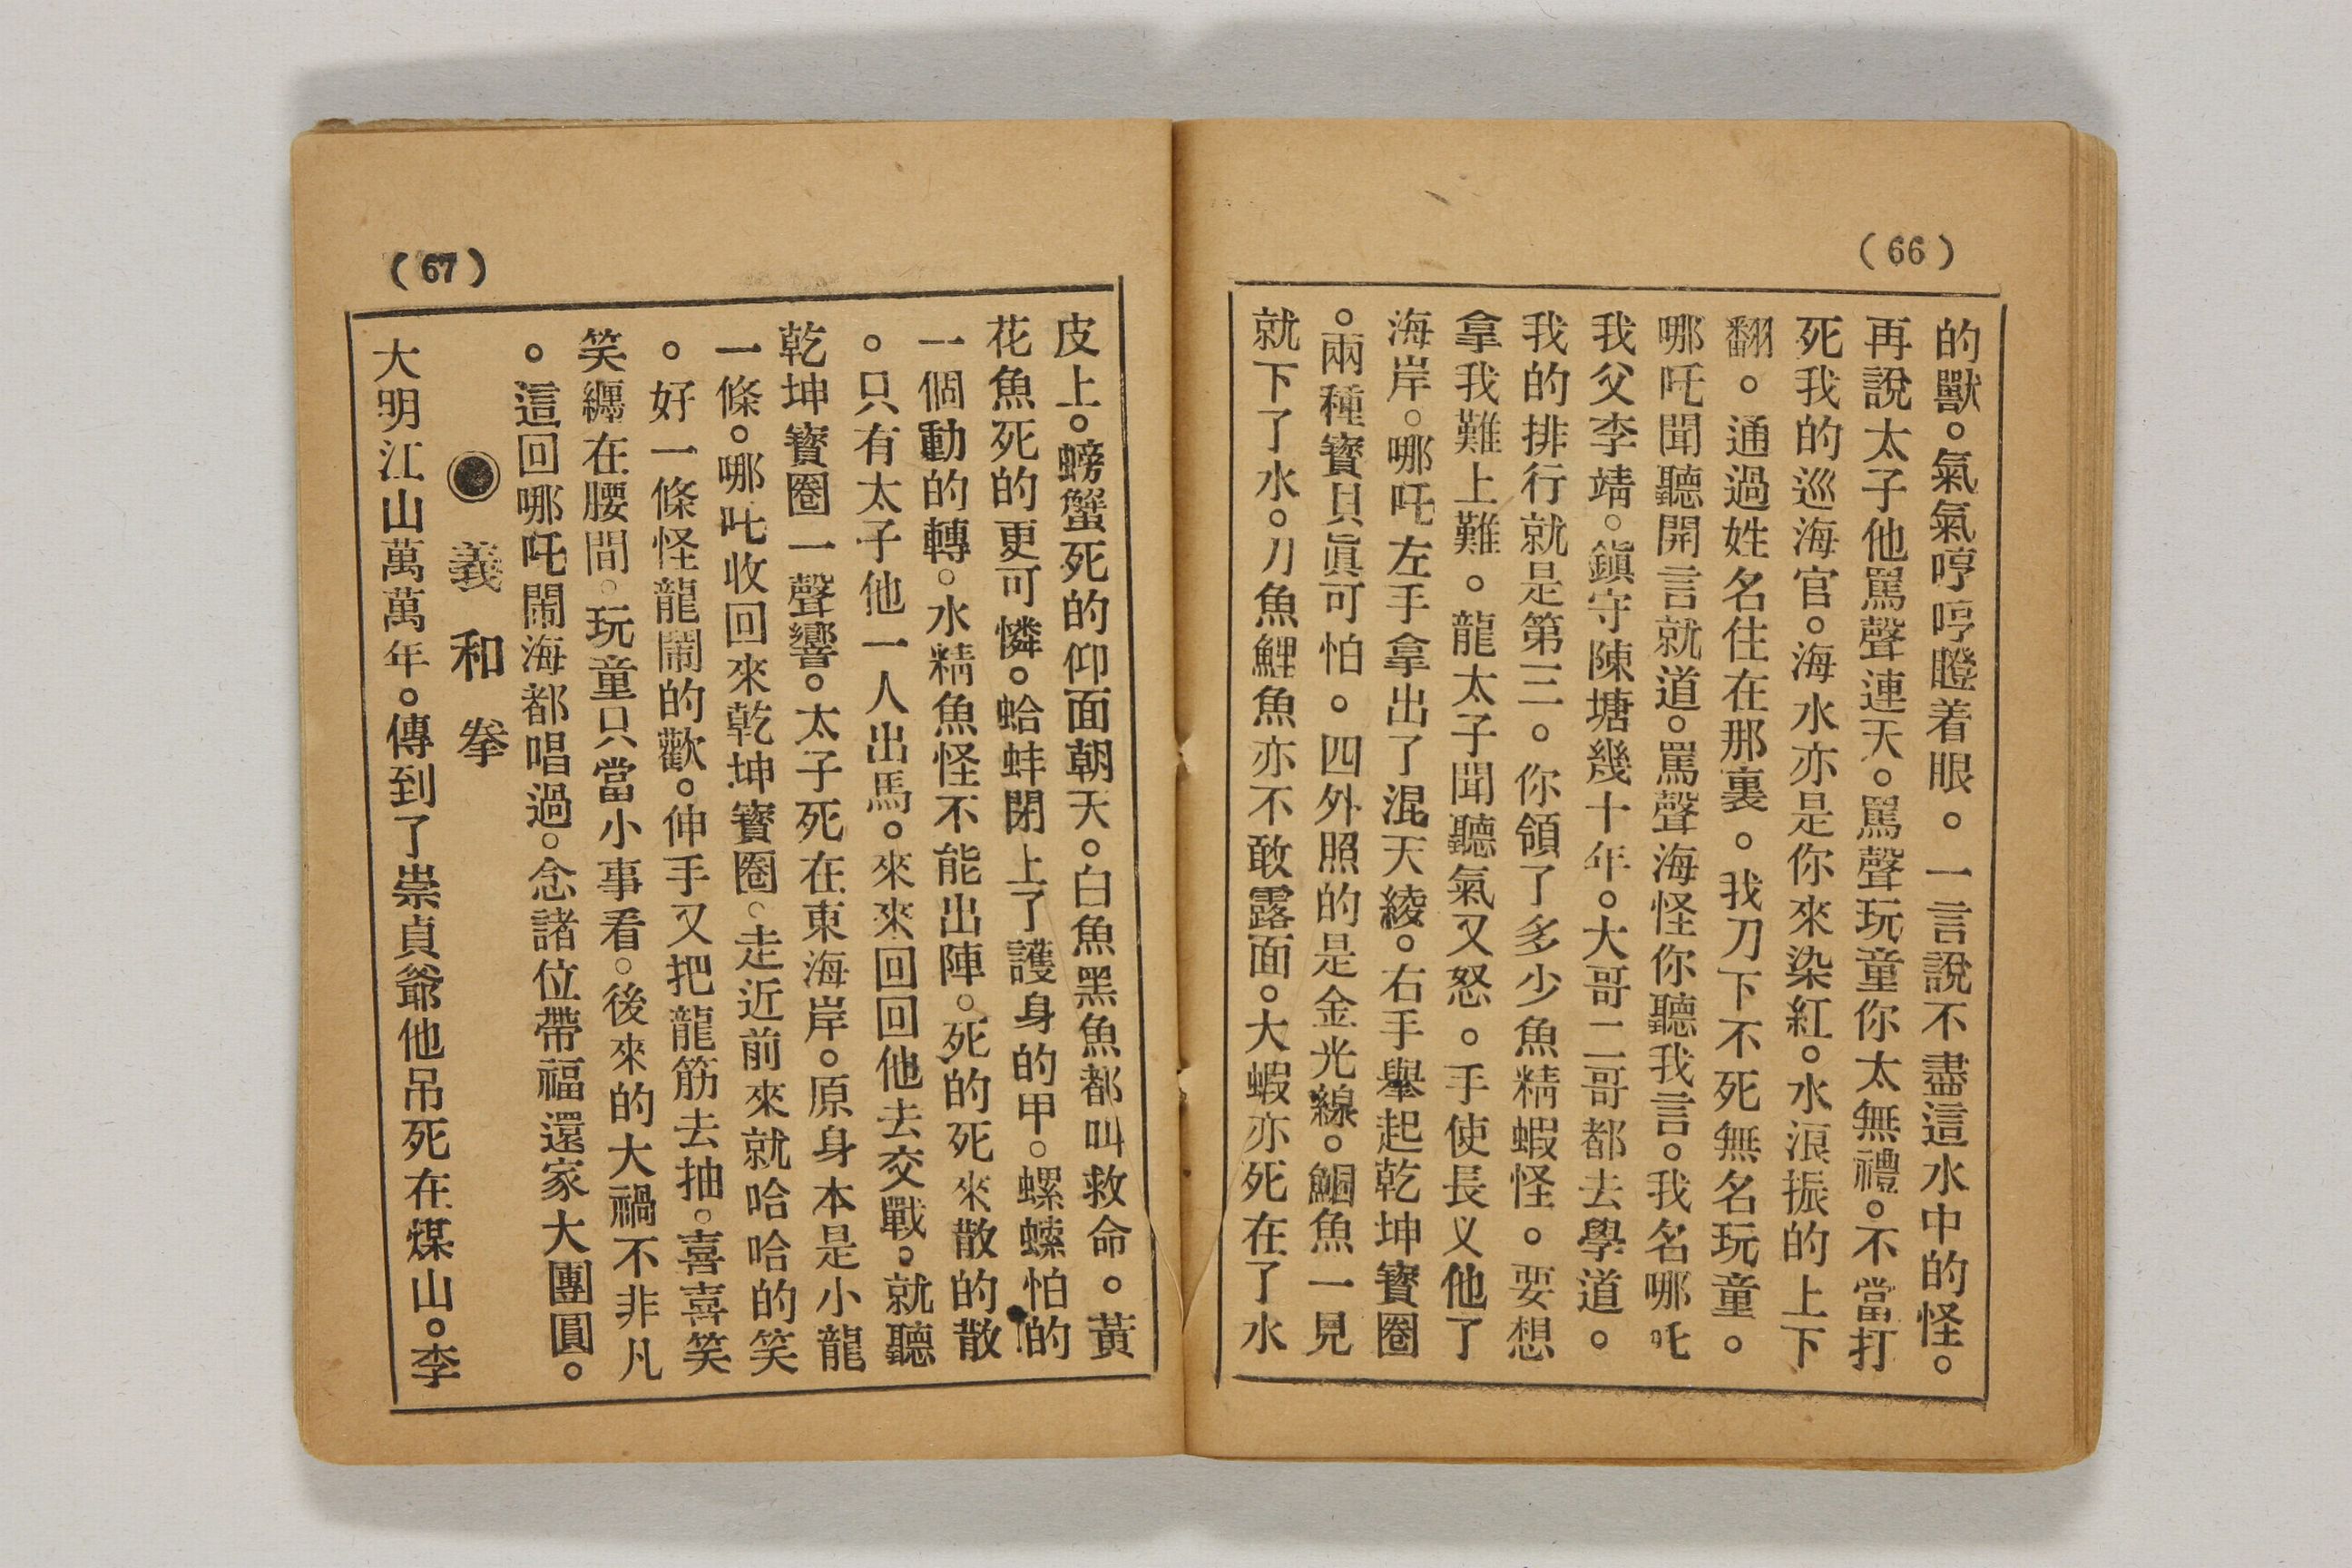 (66)
的獸。氣氣哼哼瞪着眼。一言說不盡這水中的怪。
再說太子他罵聲連天。罵聲玩童你太無禮。不當打
死我的巡海官。海水亦是你來染紅。水浪振的上下
翻。通過姓名住在那裏。我刀下不死無名玩童。
哪吒聞聽開言就道。罵聲海怪你聽我言。我名哪吒
我父李靖。鎭守陳塘幾十年。大哥二哥都去學道。
我的排行就是第三。你領了多少魚精蝦怪。要想
拿我難上難。龍太子聞聽氣又怒。手使長叉他了
海岸。哪吒左手拿出了混天綾。右手舉起乾坤寳圈
。兩種寳貝眞可怕。四外照的是金光線。鯝魚一見
就下了水。刀魚鯉魚亦不敢露面。大蝦亦死在了水
(67)
皮上。螃蟹死的仰面朝天。白魚黑魚都叫救命。黃
花魚死的更可憐。蛤蚌閉上了護身的甲。螺螦怕的
一個動的轉。水精魚怪不能出陣。死的死來散的散
。只有太子他一人出馬。來來回回他去交戰。就聽
乾坤寳圈一聲響。太子死在東海岸。原身本是小龍
一條。哪吒收回來乾坤寳圈。走近前來就哈哈的笑
。好一條怪龍鬧的歡。伸手又把龍筋去抽。喜喜笑
笑纒在腰間。玩童只當小事看。後來的大禍不非凡
。這回哪吒鬧海都唱過。念諸位帶福還家大團圓。
◉義和拳
大明江山萬萬年。傳到了崇貞爺他吊死在煤山。李